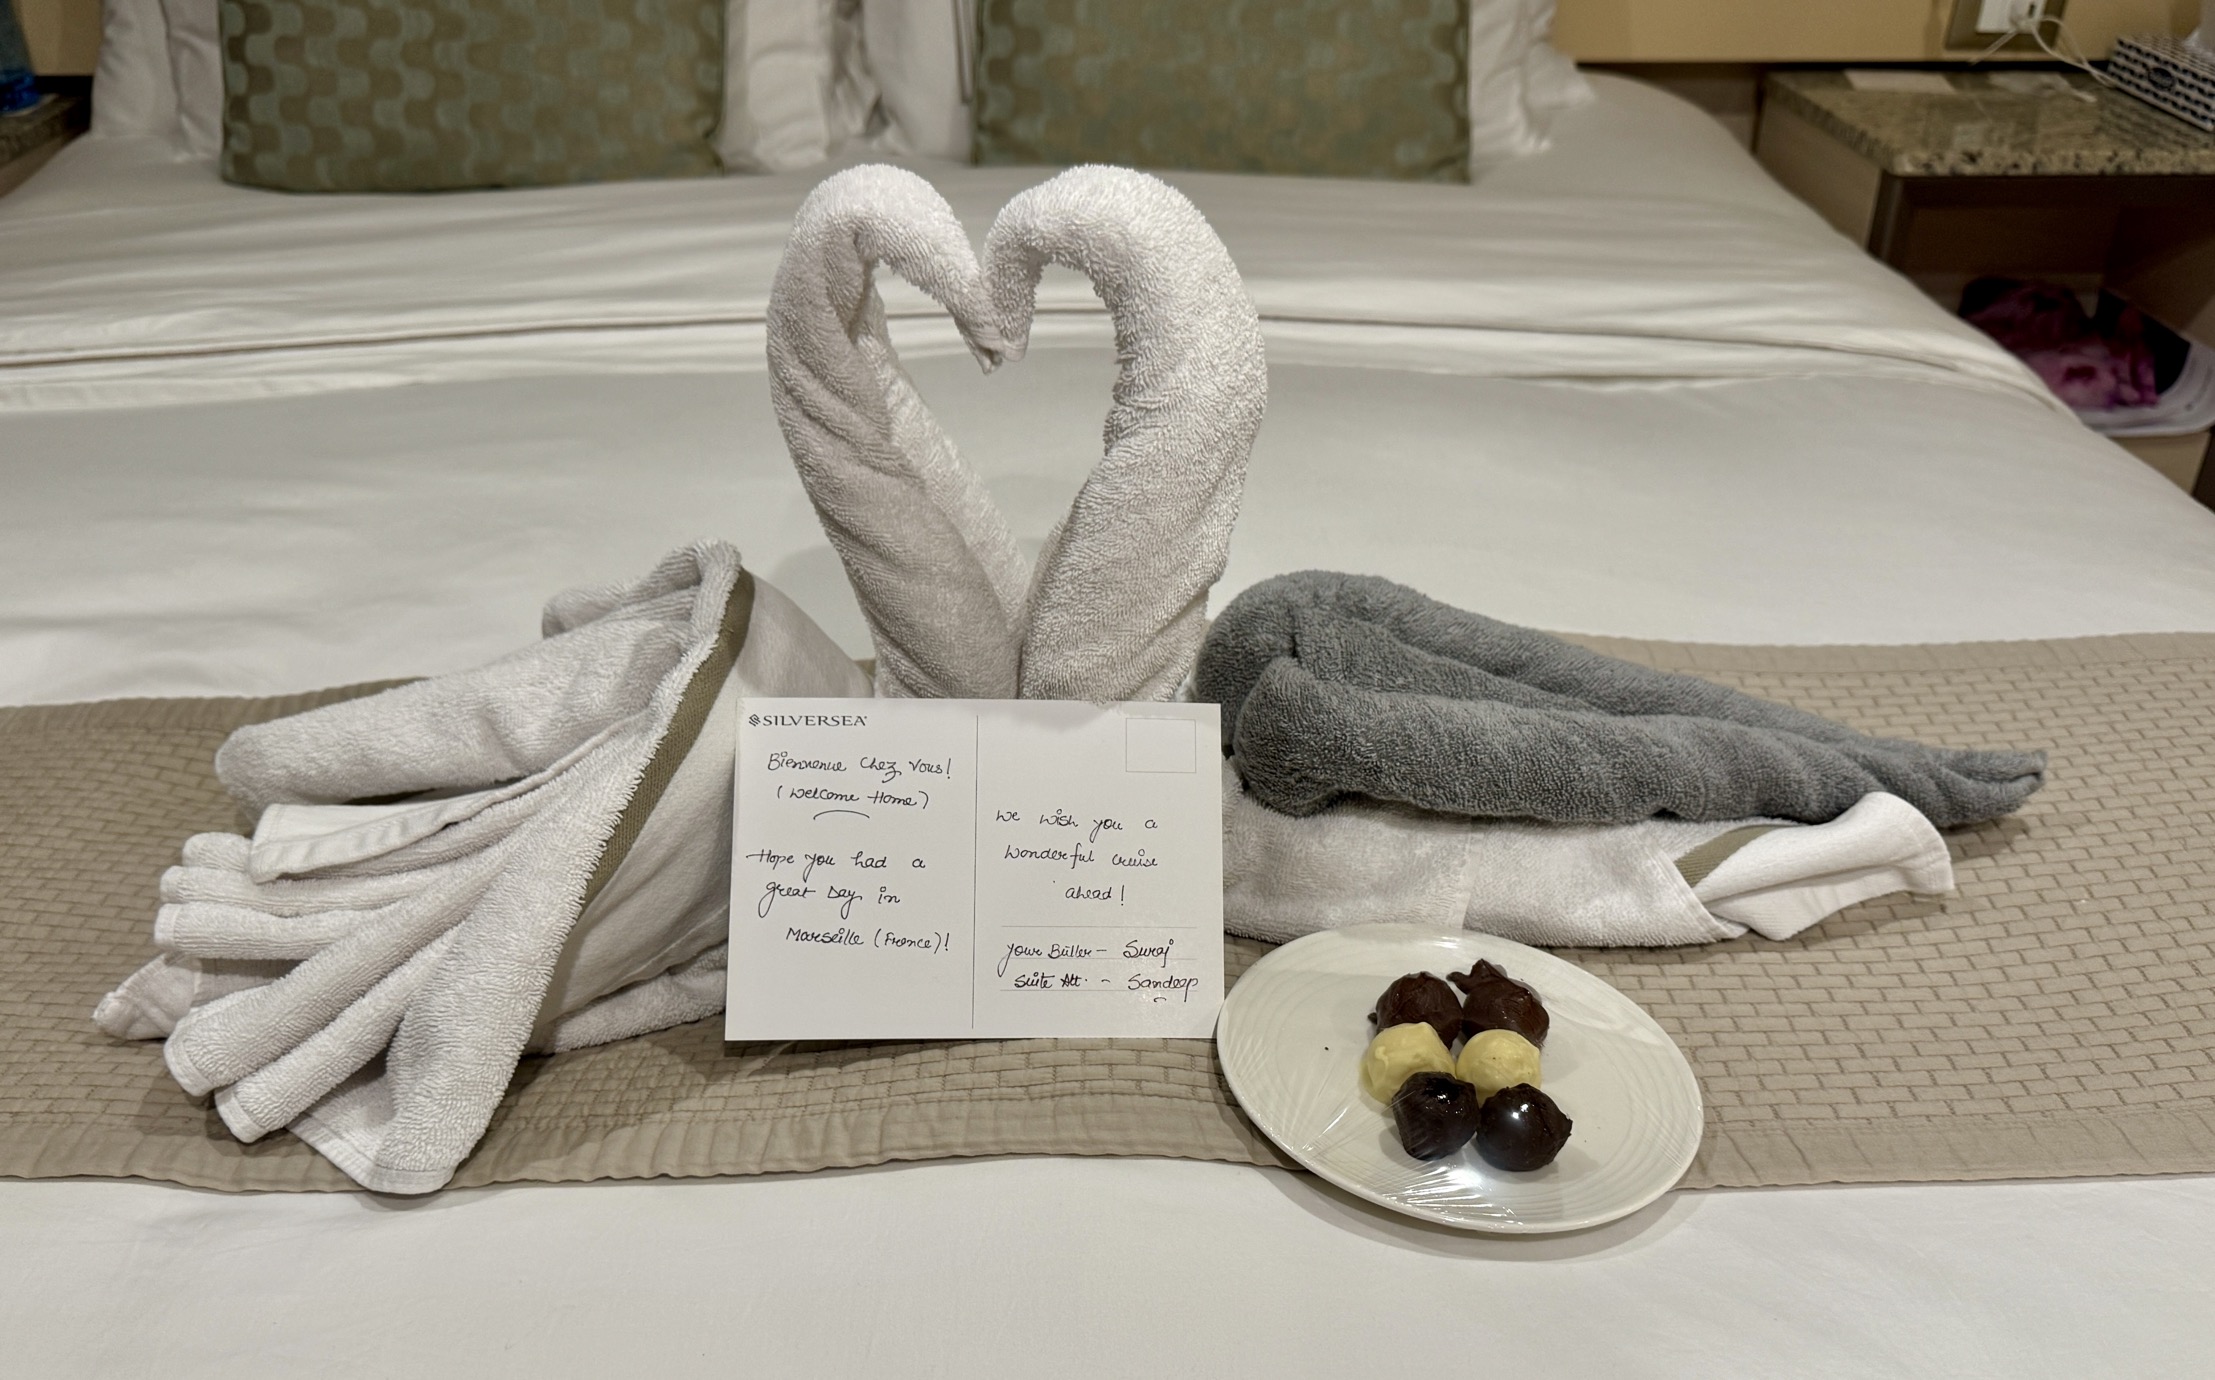 SILVERSEA
Bienvenue Chez Vous!
(Welcome Home)
Hope you had a
great Day in
Marseille (France)!
We wish you a
Wonderful cruise
ahead!
Your Butler - Suraj
Suite Att. - Sandeep